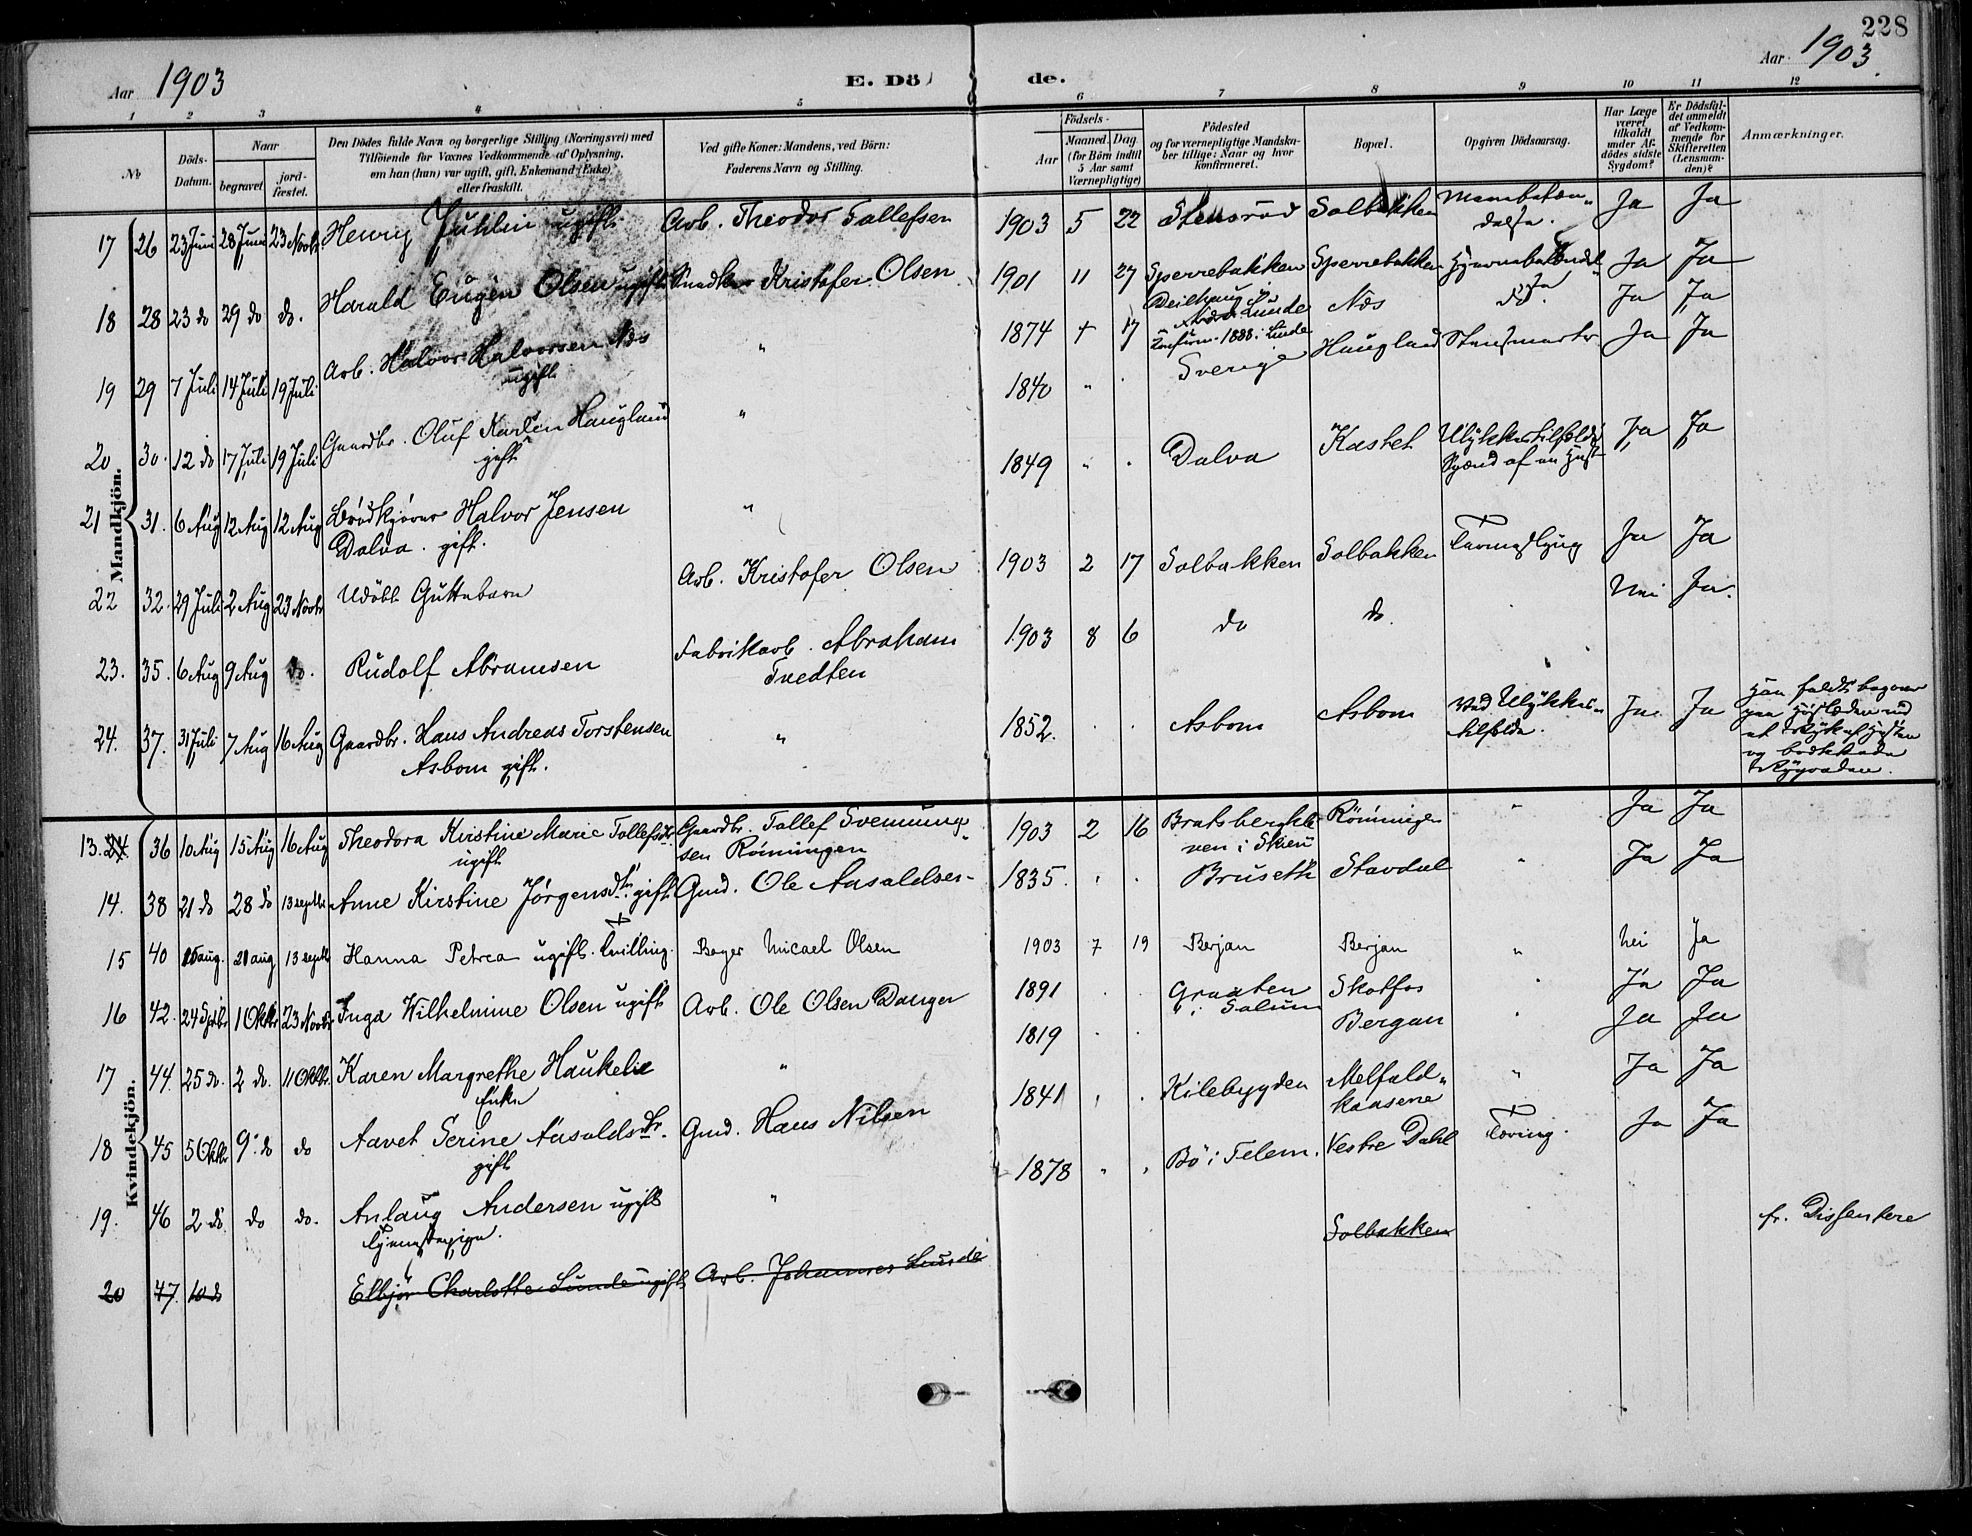 228
Aar 1903
E. Dö de.
Aar 1903.
1 2 3 4 5 6 7 8 9 10 11 12
No
Döds-Datum.
Naar
begravet
jord-fæstet.
Den Dödes fulde Navn og borgerlige Stilling (Næringsvei) med
Tilföiende for Voxnes Vedkommende af Oplysning,
om han (hun) var ugift, gift, Enkemand (Enke)
eller fraskilt.
Ved gifte Koner: Mandens, ved Börn:
Faderens Navn og Stilling.
Födsels-
Aar
Maaned. Dag
(for Börn indtil
5 Aar samt
Værnepligtige)
Födested
og for værnepligtige Mandska-
ber tillige: Naar og hvor
konfirmeret.
Bopæl.
Opgiven Dödsaarsag.
Har Læge
været
tilkaldt
under Af-
dödes sidste
Sygdom?
Er Dödsfal-
det anmeldt
af Vedkom-
mende for
Skifteretten
(Lensman-
den)?
Anmærkninger.
Mandkjön.
17 26 23 Juni 28 Juni 23 Novbr Henry Juhlin ugift Arb. Theodor Tallefsen 1903 5 22 Stensrød Solbakken Ja Ja
18 28 23 do 29 do do. Harald Eugen Olsen ugift Snedker Kristofer Olsen 1901 11 27 Sperrebakken Sperrebakken Ja Ja
19 29 7 Juli 14 Juli 19 Juli Arb. Halvor Halvorsen Næs
ugift " 1874 4 17 Lunde
Konfirm. 1888 i Lunde Næs do. Ja Ja
20 30. 12 do 17 Juli 19 Juli Gaardbr. Oluf Karlsen Haugland
gift " 1840 " . Sverige Haugland Ja Ja
21 31. 6 Aug 12 Aug 12 Aug Brødkjører Halvor Jensen
Dalva. gift. " 1849 " . Dalva Kastet Ulykkestilfælde
Spænd af en Hest Ja Ja
22 32. 29 Juli 2 Aug 23 Novbr Udöbt Guttebarn Arb. Kristofer Olsen 1903 2 17 Solbakken Solbakken Ja Ja
23. 35. 6 Aug 9 Aug do. Rudolf Abramsen Fabrikarb. Abraham
Tvedten 1903 8 6 do do. Nei Ja.
24. 37. 31 Juli 7 Aug 16 Aug Gaardbr. Hans Andreas Torstensen
Asbom gift. " 1852. . . Asbom Asbom Ved Ulykkes-
tilfælde. Ja Ja
Kvindekjön.
13. 24 36 10 Aug 15 Aug 16 Aug Theodora Kirstine Marie Tollefsdtr
ugift Gaardbr. Tallef Svenung-
sen Römingen 1903 2 16 Bratsbergkl
ven i Skien Römingen " Ja Ja
14. 38 21 do 28 do 13 septbr Anne Kirstine Jörgensdtr gift Gmd. Ole Aasoldsen 1835. . . Bruseth Stavdal " Ja Ja
15 40 20 aug. 21 aug 13 septbr Hanna Petrea ugift. tvilling. Bager Micael Olsen 1903 7 19 Berjan Berjan " nei Ja
16 42. 24 Septbr 1 Oktbr 23 Novbr Inga Wilhelmine Olsen ugift Arb. Ole Olsen Danger 1891 . . Graaten
i Solum Skotfos " Ja Ja
17 44. 25 do. 2 do. 11 Oktbr. Karen Margrethe Haukelie
Enke " 1819 . . Bergan " Ja Ja
18 45 5 Oktbr 9. do do Aavet Serine Aasoldsdtr.
gift Gmd. Hans Nilsen 1841 . . Kilebygden Melfald-
kaasene " Ja Ja
19. 46 2 do. do do. Anlaug Andersen ugift
tjenestepige. " 1878 " . Bö i Telem. Vestre Dahl Tæring. Ja Ja
fr. Dissentere
20 47. 10 do Elbjör Charlotte Lunde ugift Arb. Johannes Lunde Solbakken